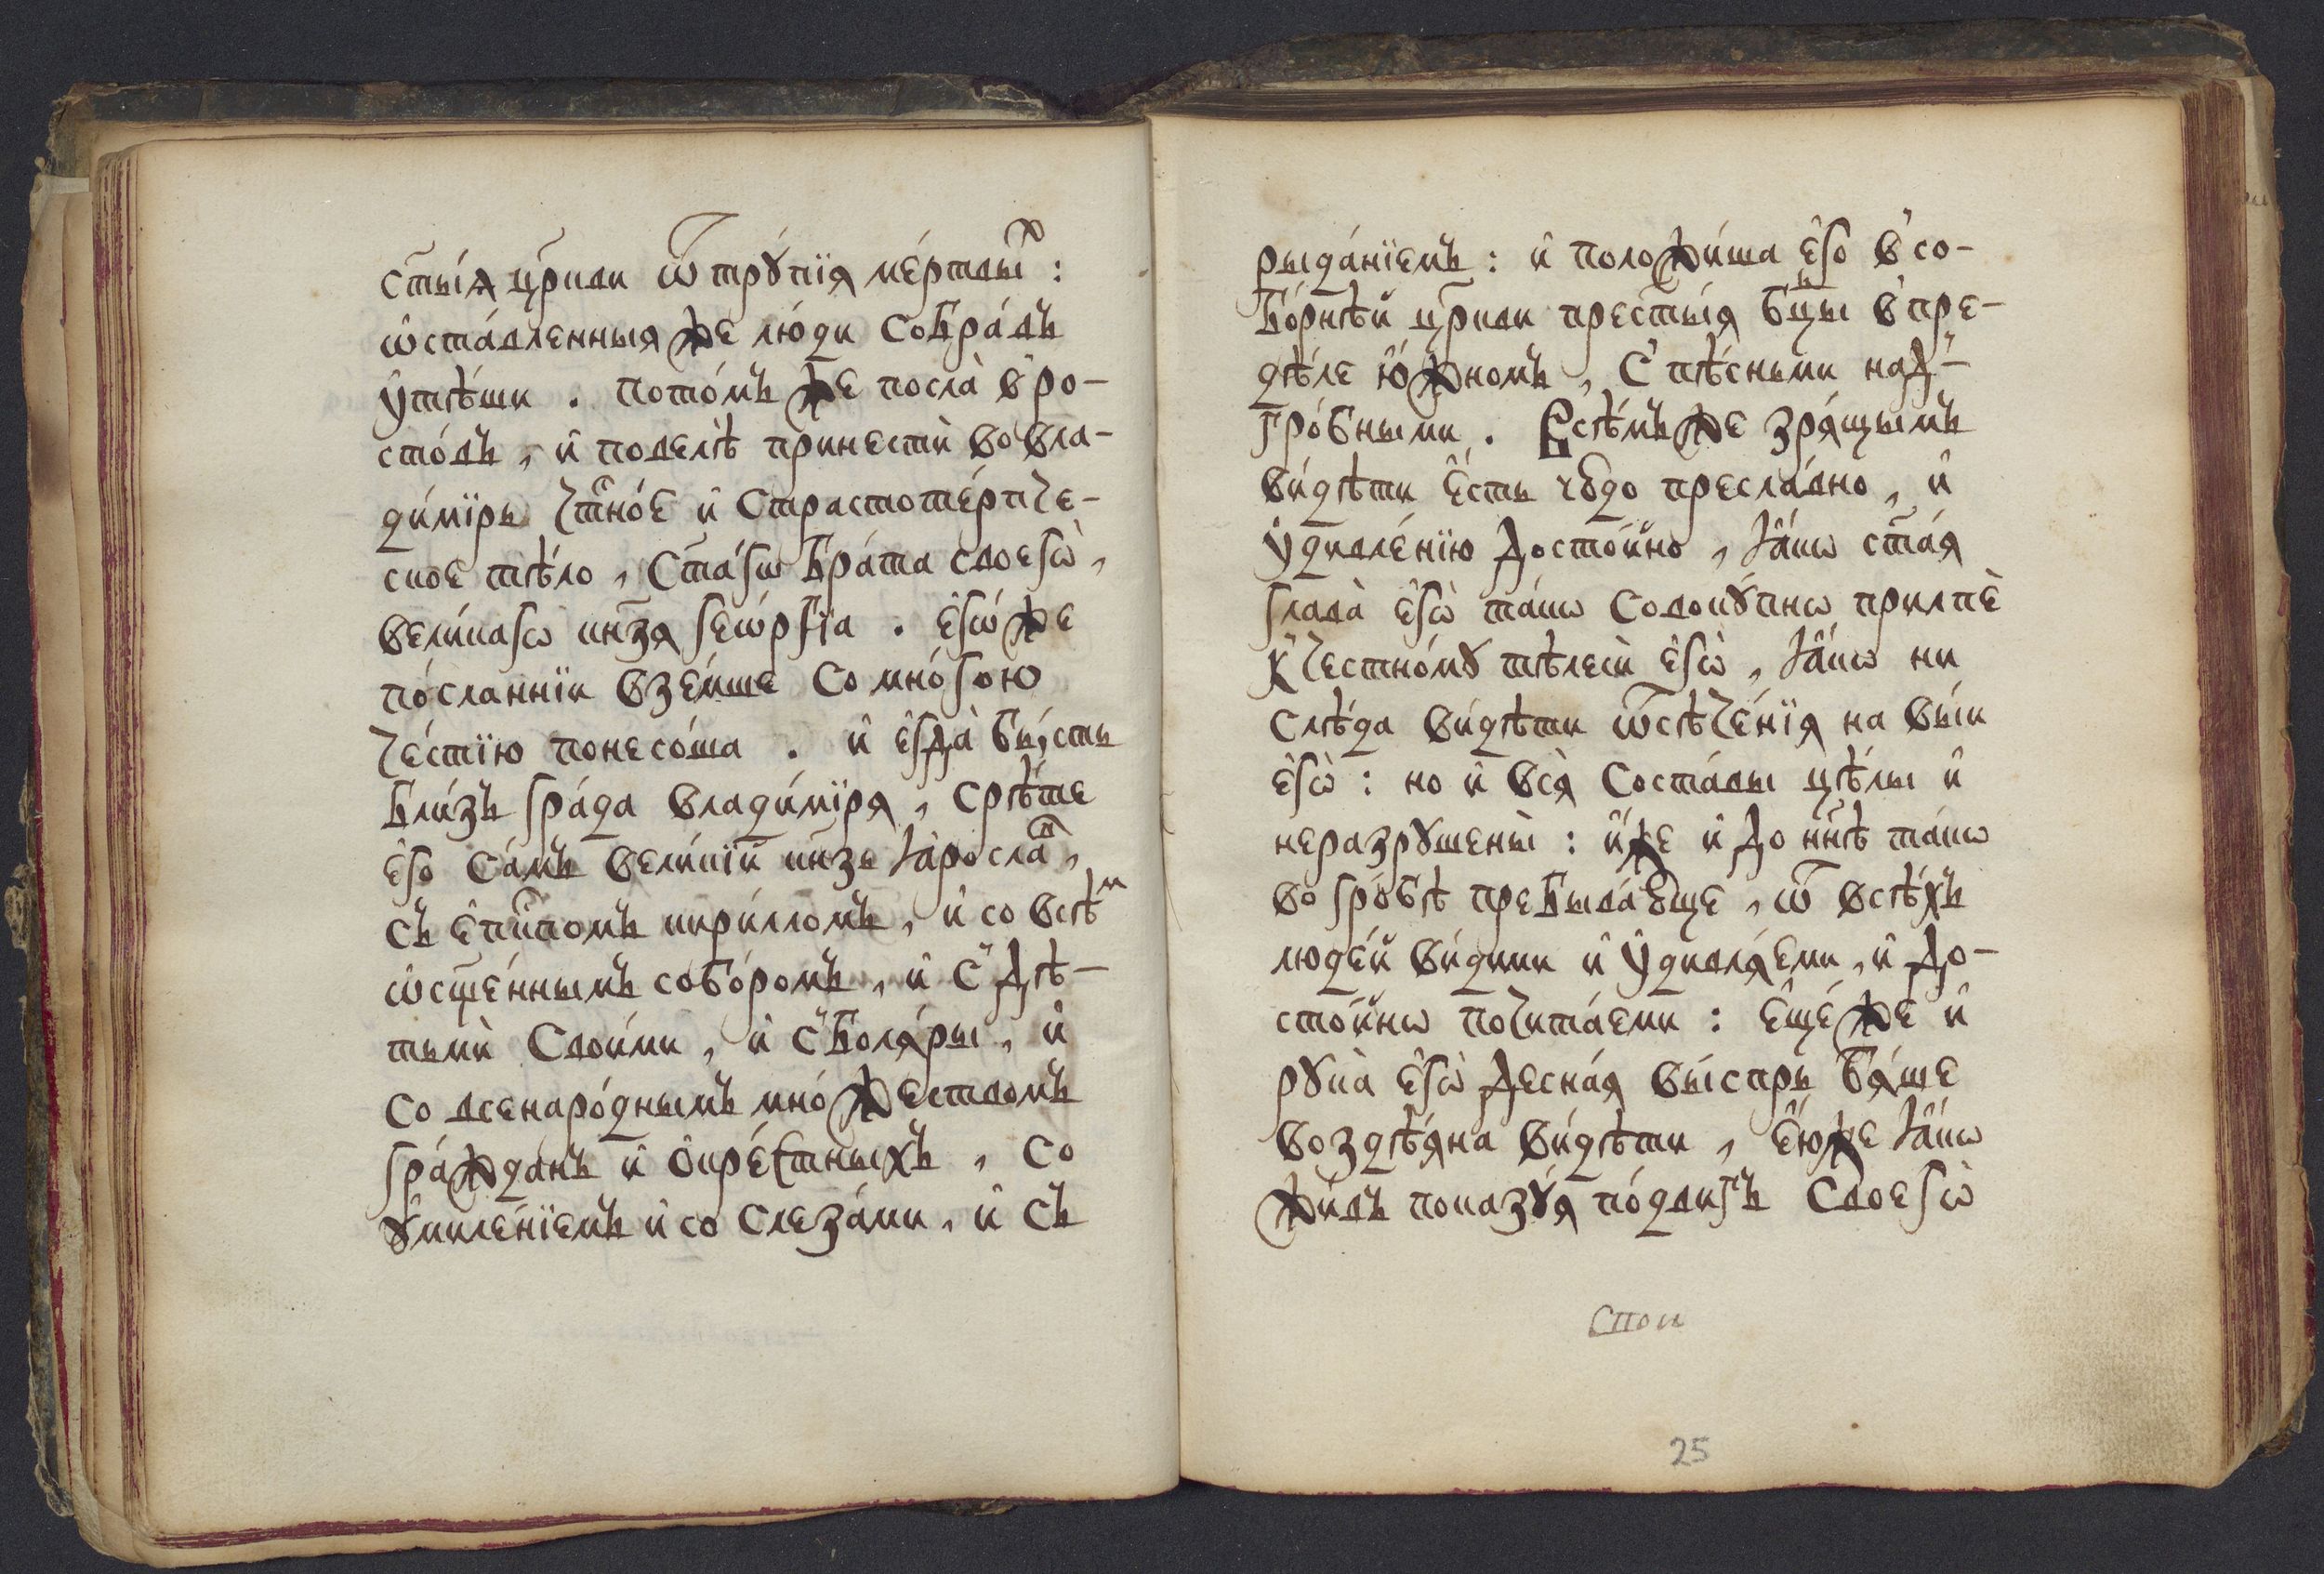 ст҃ы́я цр҃кви ѿ трꙋ́пїя ме́ртвыⷯ :
ѡ҆ста́вленныя же лю́ди собра́въ
ᲂу҆тѣ́ши . пото́мъ же посла̀ в ро-
сто́въ , и҆ повелѣ̀ принестѝ во вла-
ди́мїръ чт҃но́е и҆ страстоте́рпче-
ское тѣ́ло , ст҃а́гѡ бра́та своегѡ̀ ,
вели́кагѡ кн҃зя геѡ́ргїа . є҆гѡ́ же
по́сланнїи взе́мше со мно́гою
че́стїю понесо́ша . и҆ є҆гда̀ бы́сть
бли́зъ гра́да влади́мїря , срѣ́те
є҆го са́мъ вели́кїй кн҃зь ꙗ҆росла́ⷡ ,
съ є҆пⷭ҇копомъ кѵри́лломъ , и҆ со всѣ́ⷨ
ѡ҆сщ҃е́ннымъ собо́ромъ , и҆ с дѣ-
тьмѝ свои́ми , и҆ с боля́ры , и҆
со всенаро́днымъ мно́жествомъ
гра́жданъ и҆ ѻ҆кре́стныхъ , со
ᲂу҆миле́нїемъ и҆ со слеза́ми , и҆ съ
рыда́нїемъ : и҆ положи́ша є҆го в со-
бо́рнѣй цр҃кви прест҃ы́я бц҃ы в пре-
дѣ́ле ю҆́жномъ , с пѣ́сньми над-
гро́бными . Всѣ́мъ же зря́щымъ
ви́дѣти є҆́сть чꙋ́до пресла́вно , и҆
ᲂу҆дивле́нїю досто́йно , ꙗ҆́кѡ ст҃а́я
глава̀ є҆гѡ̀ та́кѡ совокꙋ́пнѡ прилпѐ
к честно́мꙋ тѣлесѝ є҆гѡ̀ , ꙗ҆́кѡ ни
слѣ́да ви́дѣти ѿсѣче́нїя на вы́и
є҆гѡ̀ : но и҆ всѧ̀ соста́вы цѣ́лы и҆
неразрꙋшены̀ : и҆́же и҆ до нн҃ѣ та́кѡ
во гро́бѣ пребыва́ꙋще , ѿ всѣ́хъ
люде́й ви́дими и҆ ᲂу҆дивля́еми , и҆ до-
сто́йнѡ почита́еми : є҆ще́ же и҆
рꙋка̀ є҆гѡ̀ десна́я вы́спрь бя́ше
воздѣ́яна ви́дѣти , є҆́юже ꙗ҆́кѡ
жи́въ показꙋ́я по́двигъ своегѡ̀
25